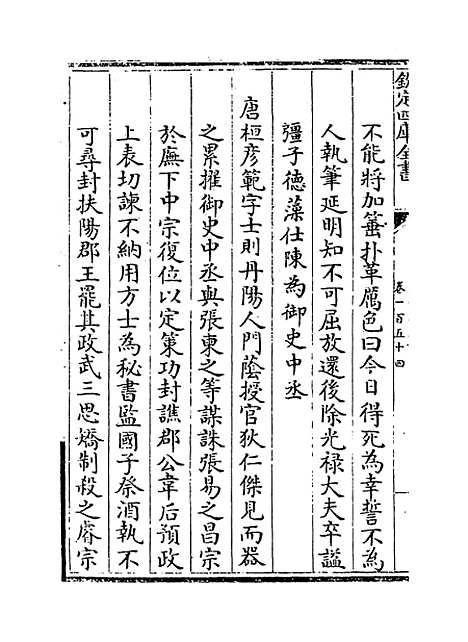 欽定四庫全書
卷一百五十四
不能將加箠扑革厲色曰今日得死為幸誓不為
人執筆延明知不可屈放還後除光禄大夫卒諡
彊子德藻仕陳為御史中丞
唐桓彦範字士則丹陽人門蔭授官狄仁傑見而器
之累擢御史中丞與張柬之等謀誅張易之昌宗
於廡下中宗復位以定策功封譙郡公韋后預政
上表切諫不納用方士為秘書監國子祭酒執不
可尋封扶陽郡王罷其政武三思矯制殺之睿宗